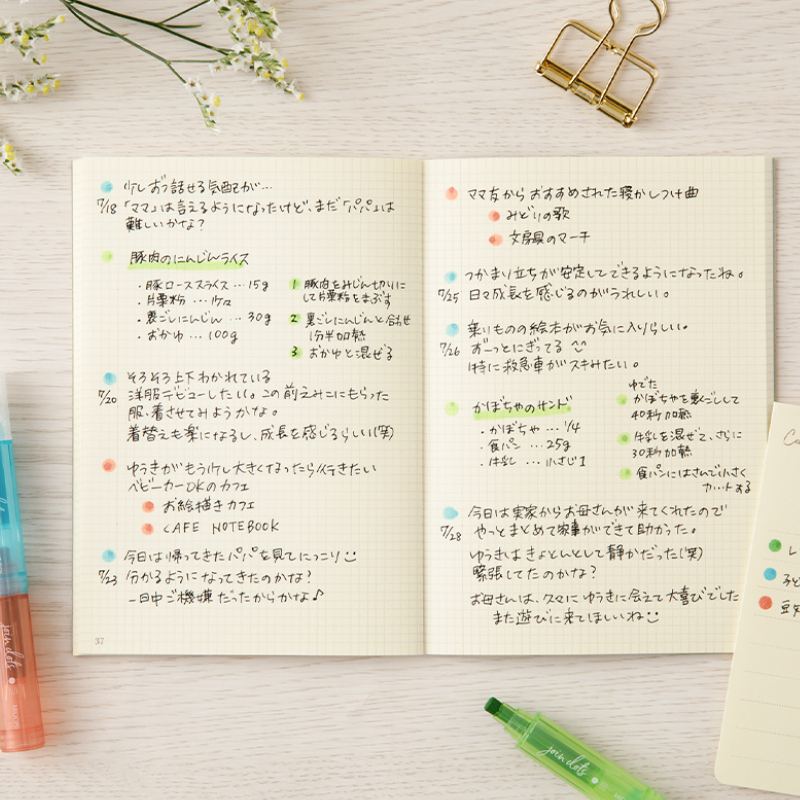 少しおつ話せる気配が…
7/18 「ママ」は言えるようになったけど、まだ「パパ」は
難しいかな?
豚肉のにんじんライス
・豚ローススライス…15g
・片栗粉…少々
・裏ごしにんじん…30g
・おかゆ…100g
1 豚肉をみじん切りに
して片栗粉をまぶす
2 裏ごしにんじんと合わせ
1分半加熱
3 おかゆと混ぜる
そろそろ上下わかれている
7/20 洋服デビューしたい。この前えみこにもらった
服、着させてみようかな。
着替えも楽になるし、成長を感じるらしい(笑)
ゆうきがもう少し大きくなったら行きたい
ベビーカーOKのカフェ
お絵描きカフェ
CAFE NOTEBOOK
今日は帰ってきたパパを見てにっこり
7/23 分かるようになってきたのかな?
一日中ご機嫌だったからかな♪
37
ママ友からおすすめされた寝かしつけ曲
みどりの歌
文房具のマーチ
つかまり立ちが安定してできるようになったね。
7/25 日々成長を感じるのがうれしい。
乗りものの絵本がお気に入りらしい。
7/26 ずーっとにぎってる ^^
特に救急車がスキみたい。
かぼちゃのサンド
・かぼちゃ…1/4
・食パン…25g
・牛乳…小さじ1
ゆでた
かぼちゃを裏ごしして
40秒加熱
牛乳を混ぜて、さらに
30秒加熱
食パンにはさんで小さく
カットする
今日は実家からお母さんが来てくれたので
7/28 やっとまとめて家事ができて助かった。
ゆうきはきょとんとして静かだった(笑)
緊張してたのかな?
お母さんは、久々にゆうきに会えて大喜びでした
また遊びに来てほしいね
join dots
join dots